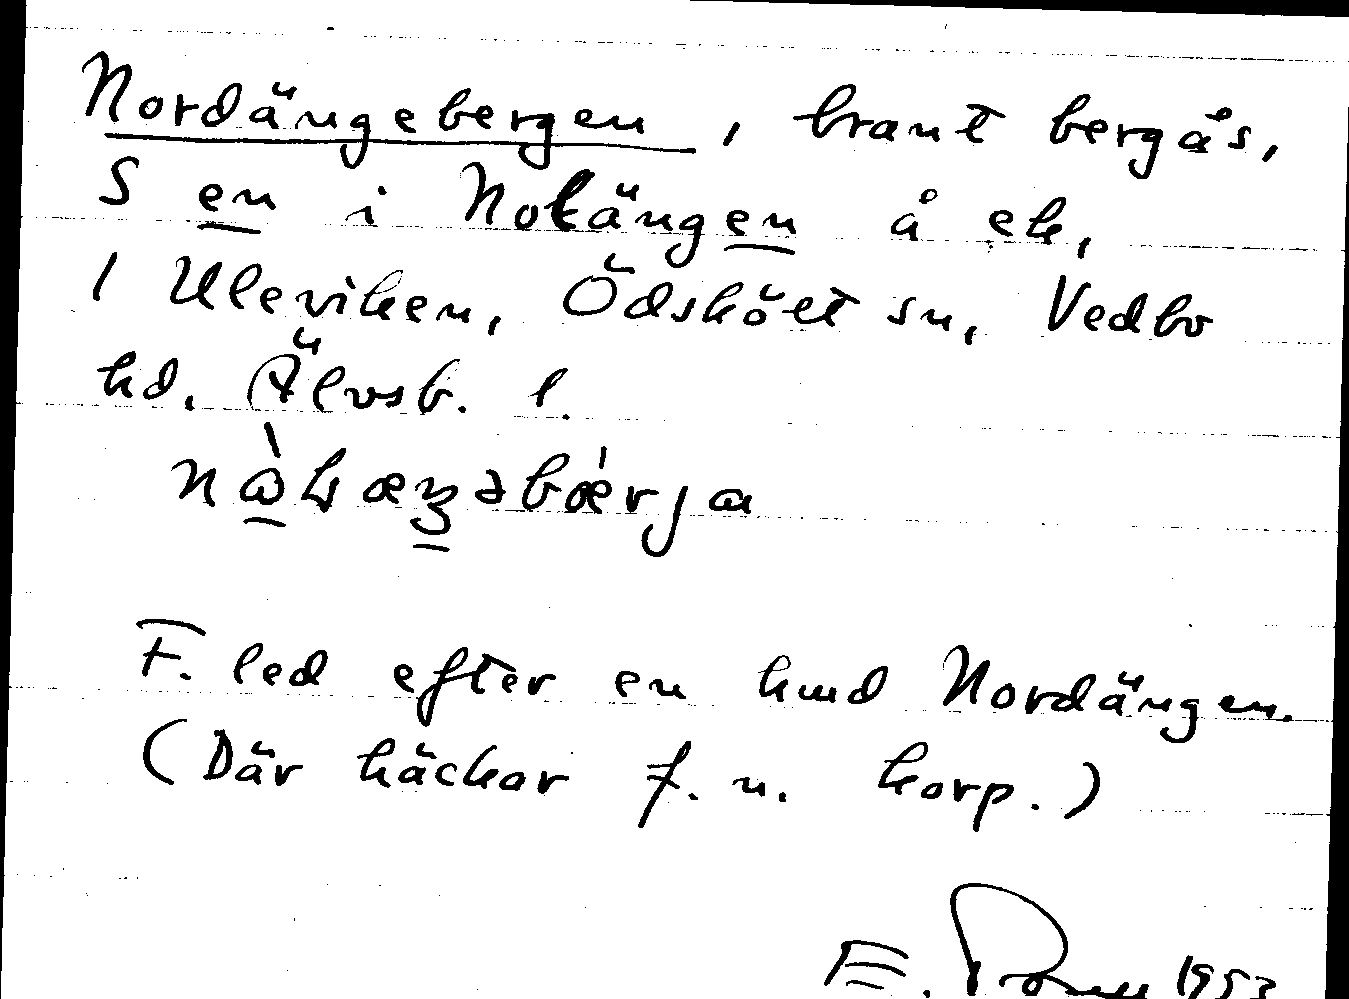 Nordängebergen, brant bergås,
S en i Notängen å ek,
1 Uleviken, Ödskölt sn, Vedbo
hd. Älvsb. l.
F. led efter en kmd Nordängen.
(Där häckar f. n. korp.)
E. 1953